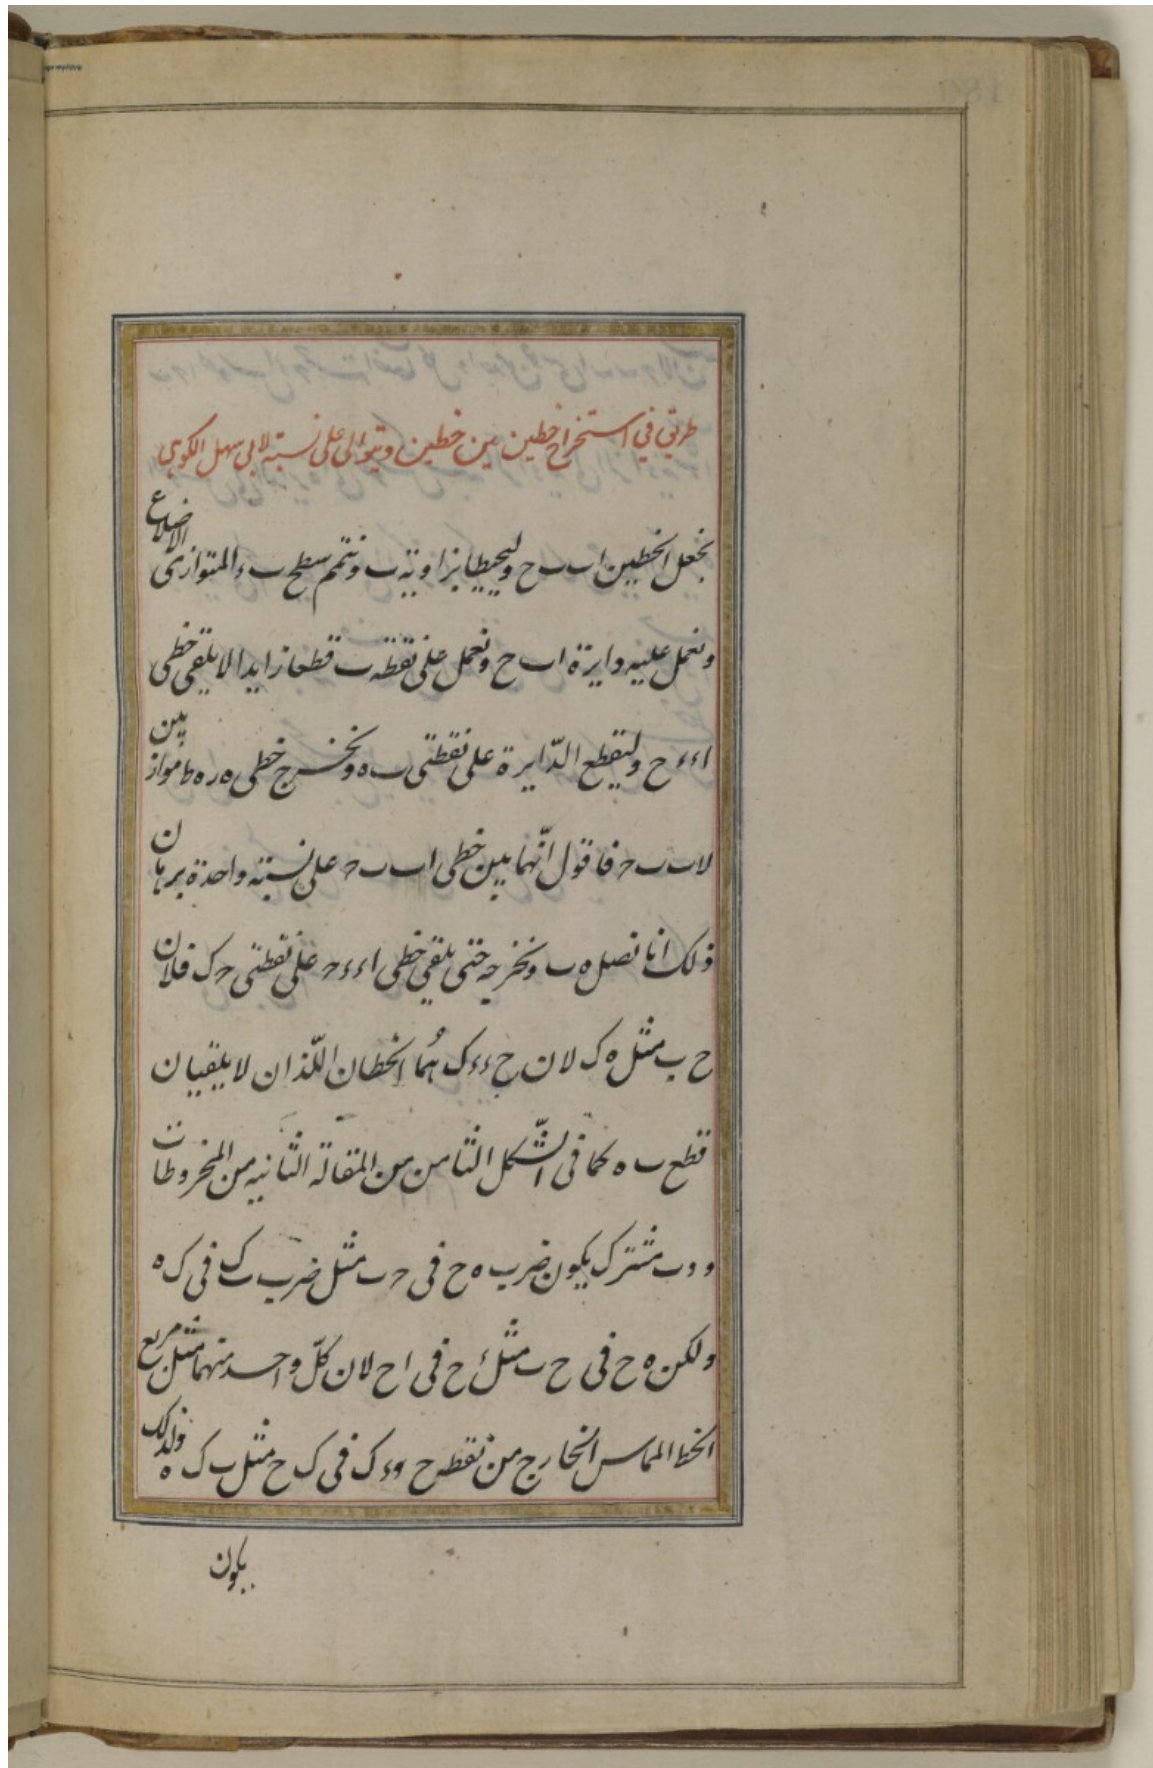 طريق في استخراج خطين بين خطين ويتوالى على نسبة لابي سهل الكوهي
نجعل الخطين ا ب ب ح وليحيطا بزاوية ب ونتمم سطح ب ء المتوازى الاضلاع
ونعمل عليه دايرة ا ب ح ونعمل على نقطة ب قطعا زايدا لا يلقى خطى
ا ء ء ح وليقطع الدّايرة على نقطتى ب ه ونخرج خطى ه ر ه ط موازيين
لاب ب ح فاقول انّهما بين خطى ا ب ب ح على نسبة واحدة برهان
ذلك انا نصل ه ب ونخرجه حتى يلقى خطى ا ء ء ح على نقطتى ح ك فلان
ح ب مثل ه ك لان ح ء ء ك هُما الخطان اللّذان لا يلقيان
قطع ب ه كما فى الشّكل الثامن من المقالة الثانيه من المخروطات
و ه ب مشترك يكون ضرب ه ح فى ح ب مثل ضرب ب ك فى ك ه
ولكن ه ح فى ح ب مثل ء ح فى ا ح لان كلّ واحد منهما مثل مربع
الخط المماس الخارج من نقطه ح و ء ك فى ك ح مثل ب ك ه ولذلك
يكون